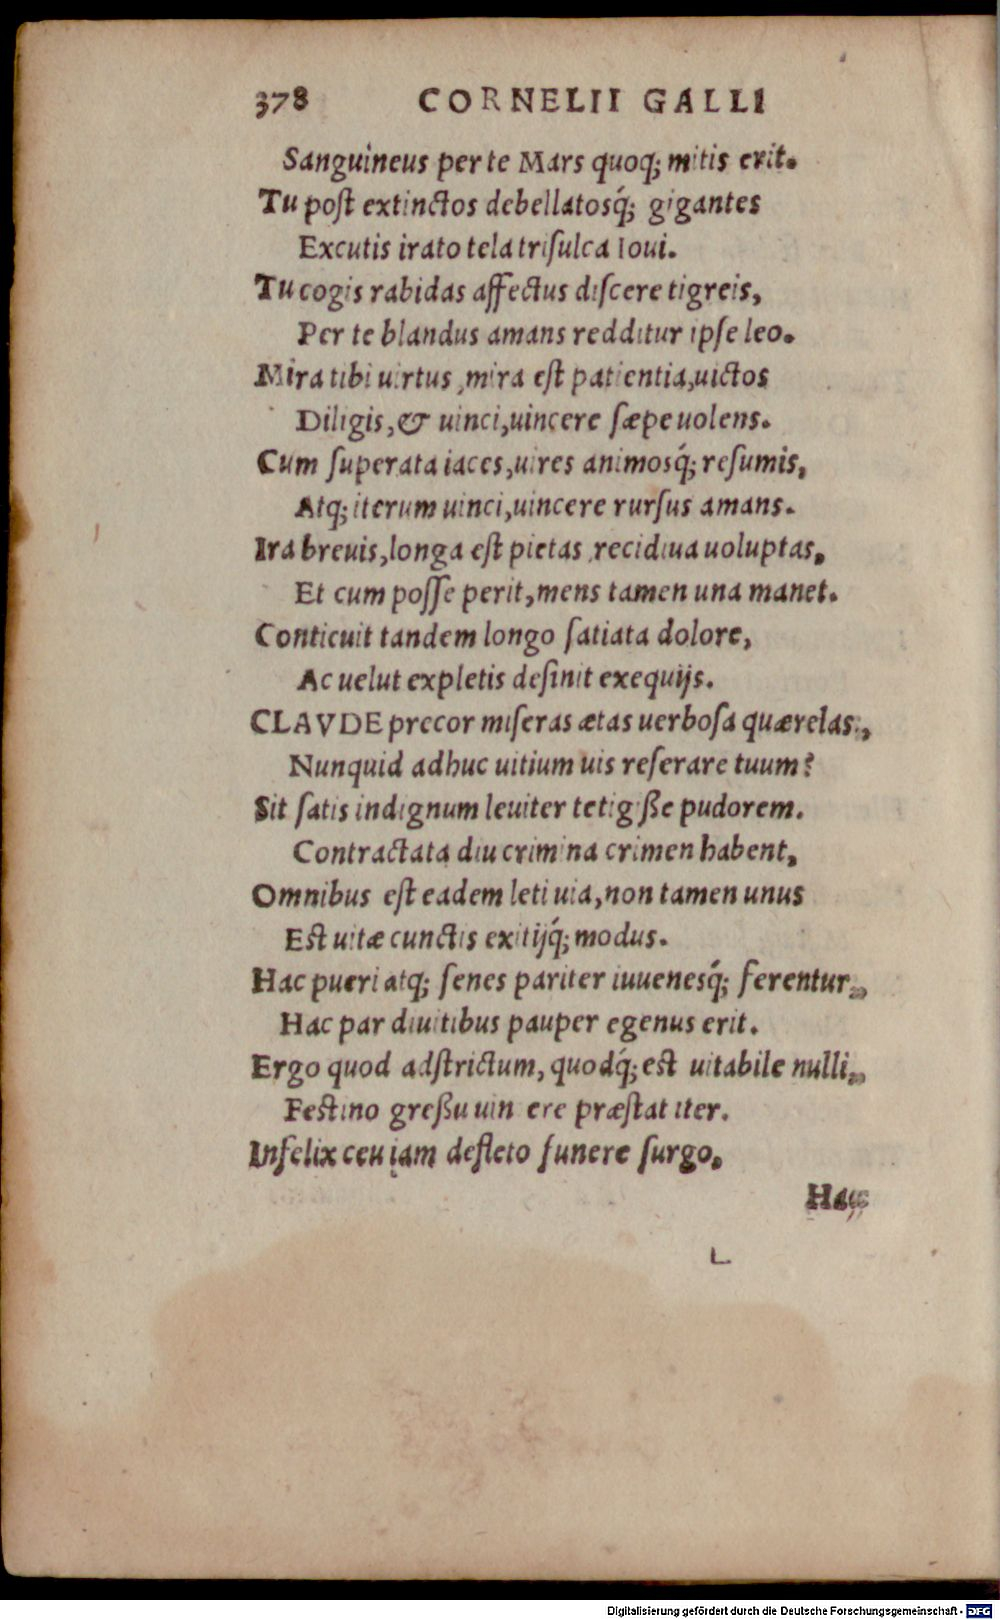 378 CORNELII GALLI
Sanguineus per te Mars quoq; mitis erit.
Tu poſt extinctos debellatosq́; gigantes
Excutis irato tela triſulca Ioui.
Tu cogis rabidas affectus diſcere tigreis,
Per te blandus amans redditur ipſe leo.
Mira tibi uirtus, mira eſt patientia, uictos
Diligis, & uinci, uincere ſæpe uolens.
Cum ſuperata iaces, uires animosq́; reſumis,
Atq; iterum uinci, uincere rurſus amans.
Ira breuis, longa eſt pietas, recidiua uoluptas,
Et cum poſſe perit, mens tamen una manet.
Conticuit tandem longo ſatiata dolore,
Ac uelut expletis deſinit exequijs.
CLAVDE precor miſeras ætas uerboſa quærelas,
Nunquid adhuc uitium uis reſerare tuum?
Sit ſatis indignum leuiter tetigiße pudorem.
Contractata diu crimina crimen habent,
Omnibus eſt eadem leti uia, non tamen unus
Eſt uitæ cunctis exitijq́; modus.
Hac pueri atq; ſenes pariter iuuenesq́; ferentur,
Hac par diuitibus pauper egenus erit.
Ergo quod adſtrictum, quodq́; eſt uitabile nulli,
Feſtino greßu uin ere præſtat iter.
Infelix ceu iam defleto funere ſurgo,
Digitalisierung gefördert durch die Deutsche Forschungsgemeinschaft - DFG